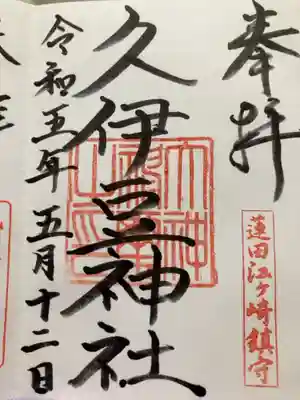 奉拝
蓮田江ヶ崎鎮守
久伊豆神社
令和五年五月十二日